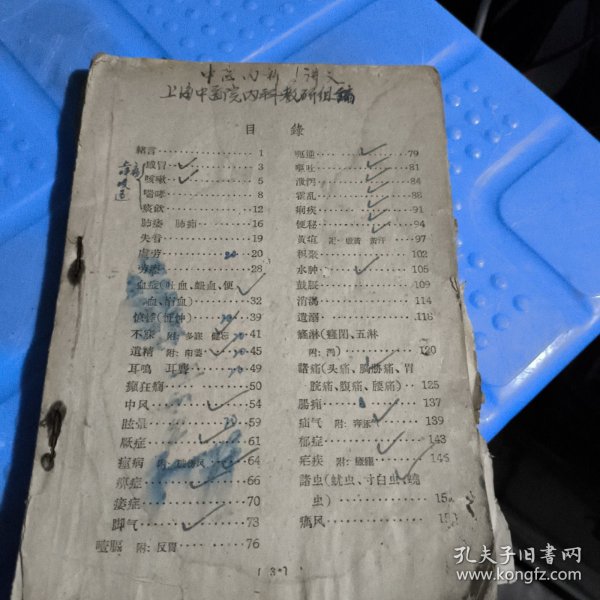 中医内科讲义
上海中医院内科教研组编
目 錄
緒言 1
感冒 3
咳嗽 5
喘哮 8
痰飲 12
肺癆 肺痈 16
失音 19
虛劳 20
劳瘵 28
血症(吐血、衂血、便
血、溺血) 32
惊悸(怔忡) 39
不寐 附:多寐 健忘 41
遺精 附:陽萎 45
耳鳴 耳聾 49
癲狂癇 50
中风 54
眩暈 59
厥症 61
痙病 附:破傷风 64
痹症 66
痿症 70
脚气 73
噎膈 附:反胃 76
呃逆 79
嘔吐 81
泄泻 84
霍乱 88
痢疾 91
便秘 94
黃疸 附: 97
积聚 102
水肿 105
鼓脹 109
消渴 114
遺溺 118
癃淋(癃閉、五淋
附:濁) 120
諸痛(头痛、胸胁痛、胃
脘痛、腹痛、腰痛) 125
腸痈 137
疝气 139
郁症 143
疟疾 146
諸虫(蚘虫、寸白虫、蟯
虫) 15
痛风 15
孔夫子旧书网
www.kongfz.com